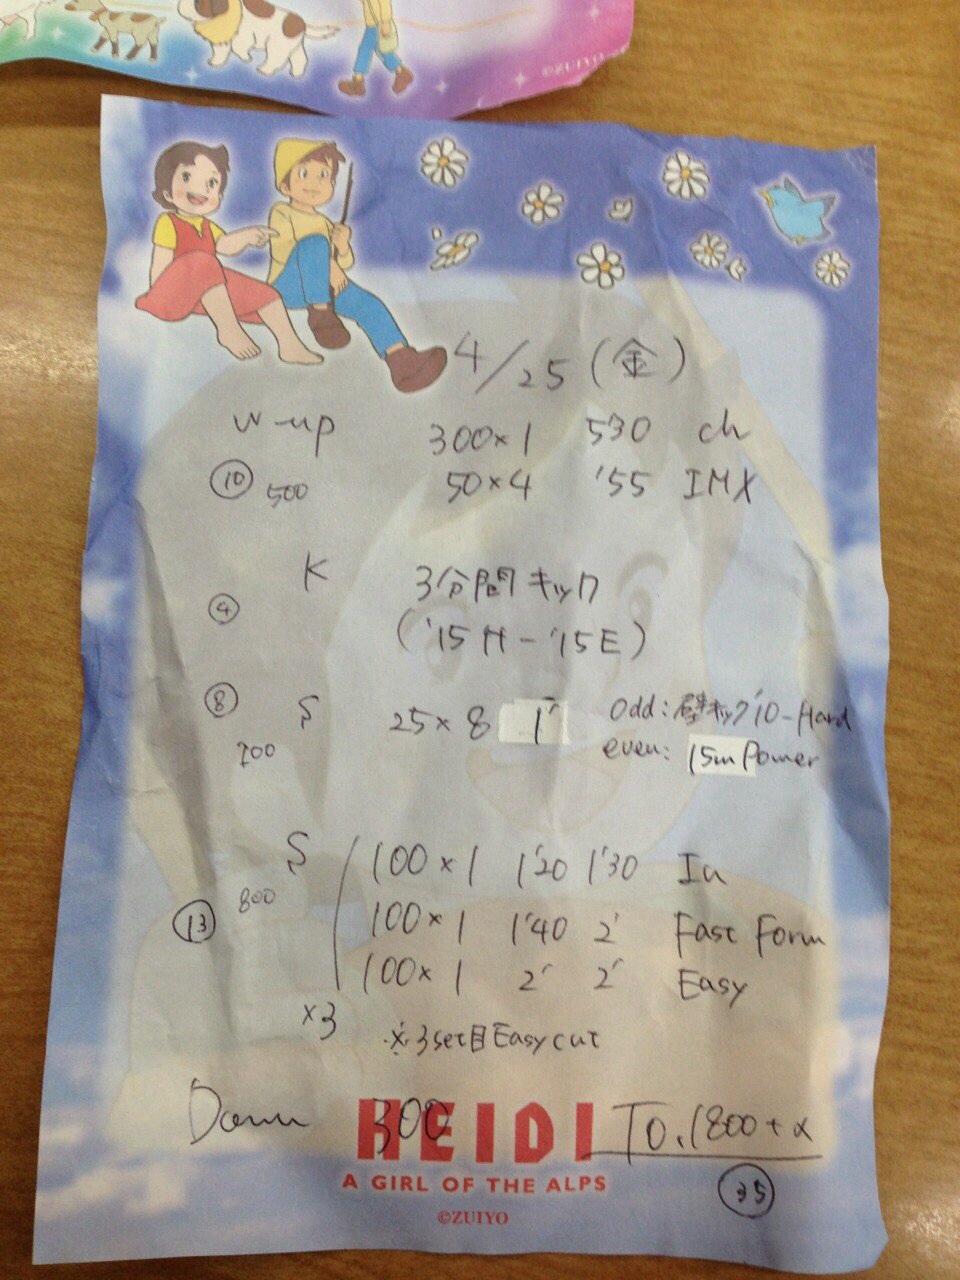 ©ZUIYO
4/25 (金)
W-up 300×1 530 ch
⑩ 500 50×4 '55 IMX
K 3分間キック
④ ('15 H - '15 E)
⑧ S 25×8 1' Odd: 壁キック'10-Hard
200 even: 15m Power
S 100×1 1'20 1'30 In
800 100×1 1'40 2' Fast Form
⑬ 100×1 2' 2' Easy
×3 ※3set目Easy cut
Down 300 To. 1800+α
HEIDI
A GIRL OF THE ALPS
㉟
©ZUIYO